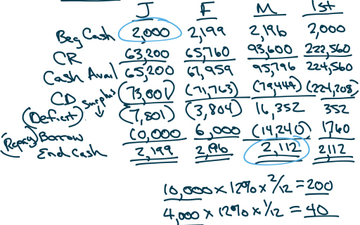 J F M 1st
Beg Cash 2,000 2,199 2,196 2,000
CR 63,200 65,760 93,600 222,560
Cash Avail 65,200 67,959 95,796 224,560
CD (73,001) (71,763) (79,444) (224,208)
Surplus
(Deficit) (7,801) (3,804) 16,352 352
(Repay) Borrow 10,000 6,000 (14,240) 1760
End Cash 2,199 2,196 2,112 2,112
10,000 x 12% x 2/12 = 200
4,000 x 12% x 1/12 = 40